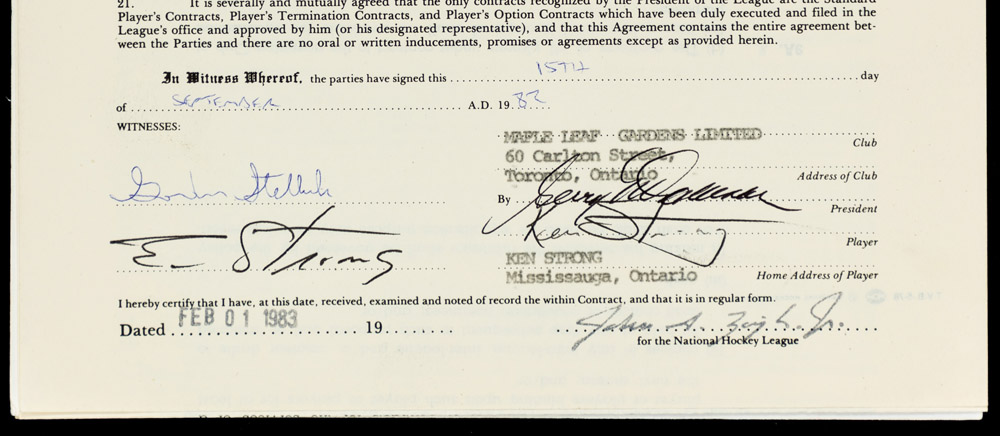 21. It is severally and mutually agreed that the only contracts recognized by the President of the League are the Standard
Player's Contracts, Player's Termination Contracts, and Player's Option Contracts which have been duly executed and filed in the
League's office and approved by him (or his designated representative), and that this Agreement contains the entire agreement bet-
ween the Parties and there are no oral or written inducements, promises or agreements except as provided herein.
In Witness Whereof, the parties have signed this 15TH day
of SEPTEMBER A.D. 19 82
WITNESSES:
MAPLE LEAF GARDENS LIMITED Club
60 Carlton Street,
Toronto, Ontario Address of Club
Gordon Stellick
By President
Ken Strong Player
E Strong
KEN STRONG
Mississauga, Ontario Home Address of Player
I hereby certify that I have, at this date, received, examined and noted of record the within Contract, and that it is in regular form.
Dated FEB 01 1983 19 John A. Ziegler Jr.
for the National Hockey League